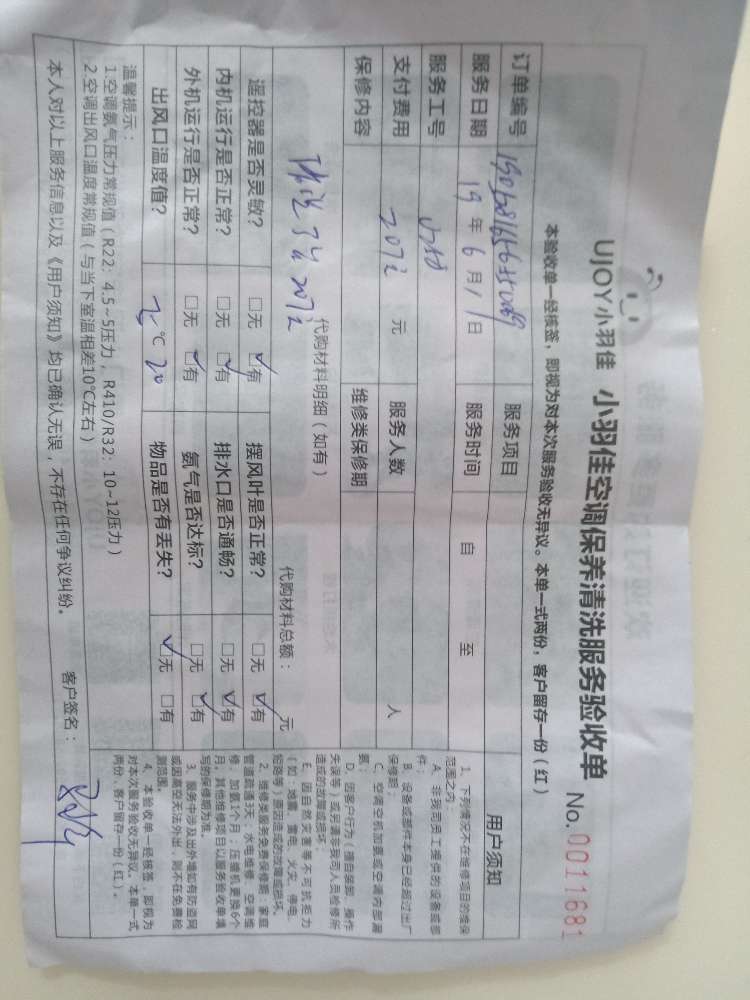 UJOY小羽佳 小羽佳空调保养清洗服务验收单 No. 0011681
本验收单一经核签，即视为对本次服务验收无异议。本单一式两份，客户留存一份（红）
订单编号 服务项目
服务日期 19 年 6 月 11 日 服务时间 自 至
服务工号
支付费用 207元 元 服务人数 人
保修内容 维修类保修期
代购材料明细（如有） 代购材料总额： 元
207元
遥控器是否灵敏？ □无 □有 摆风叶是否正常？ □无 □有
内机运行是否正常？ □无 □有 排水口是否通畅？ □无 □有
外机运行是否正常？ □无 □有 氨气是否达标？ □无 □有
出风口温度值？ ℃ 20 物品是否有丢失？ □无 □有
温馨提示：
1.空调氨气压力常规值（R22：4.5~5压力，R410/R32：10~12压力）
2.空调出风口温度常规值（与当下室温相差10℃左右）
本人对以上服务信息以及《用户须知》均已确认无误，不存在任何争议纠纷。 客户签名：
用户须知
1、下列情况不在维修项目的维保
范围之内：
A、非我司员工提供的设备或部
件；
B、设备或部件本身已经超过出厂
保修期；
C、空调空机加氨或空调内部漏
氨；
D、因客户行为（擅自装卸、操作
失误等）或另请非我司人员检修所
造成的故障或损坏；
E、因自然灾害等不可抗拒力
（如：地震、雷电、火灾、停电、
短路等）原因造成的故障或损坏。
2、维修类服务免费保修期：家庭
管道疏通3天，水电维修、空调维
修、加氨1个月；压缩机更换6个
月，其他维修项目以服务验收单填
写的保修期为准。
3、服务中涉及出外墙如有防盗网
或因高空无法外出，则不在免费检
测范围。
4、本验收单一经核签，即视为
对本次服务验收无异议。本单一式
两份，客户留存一份（红）。